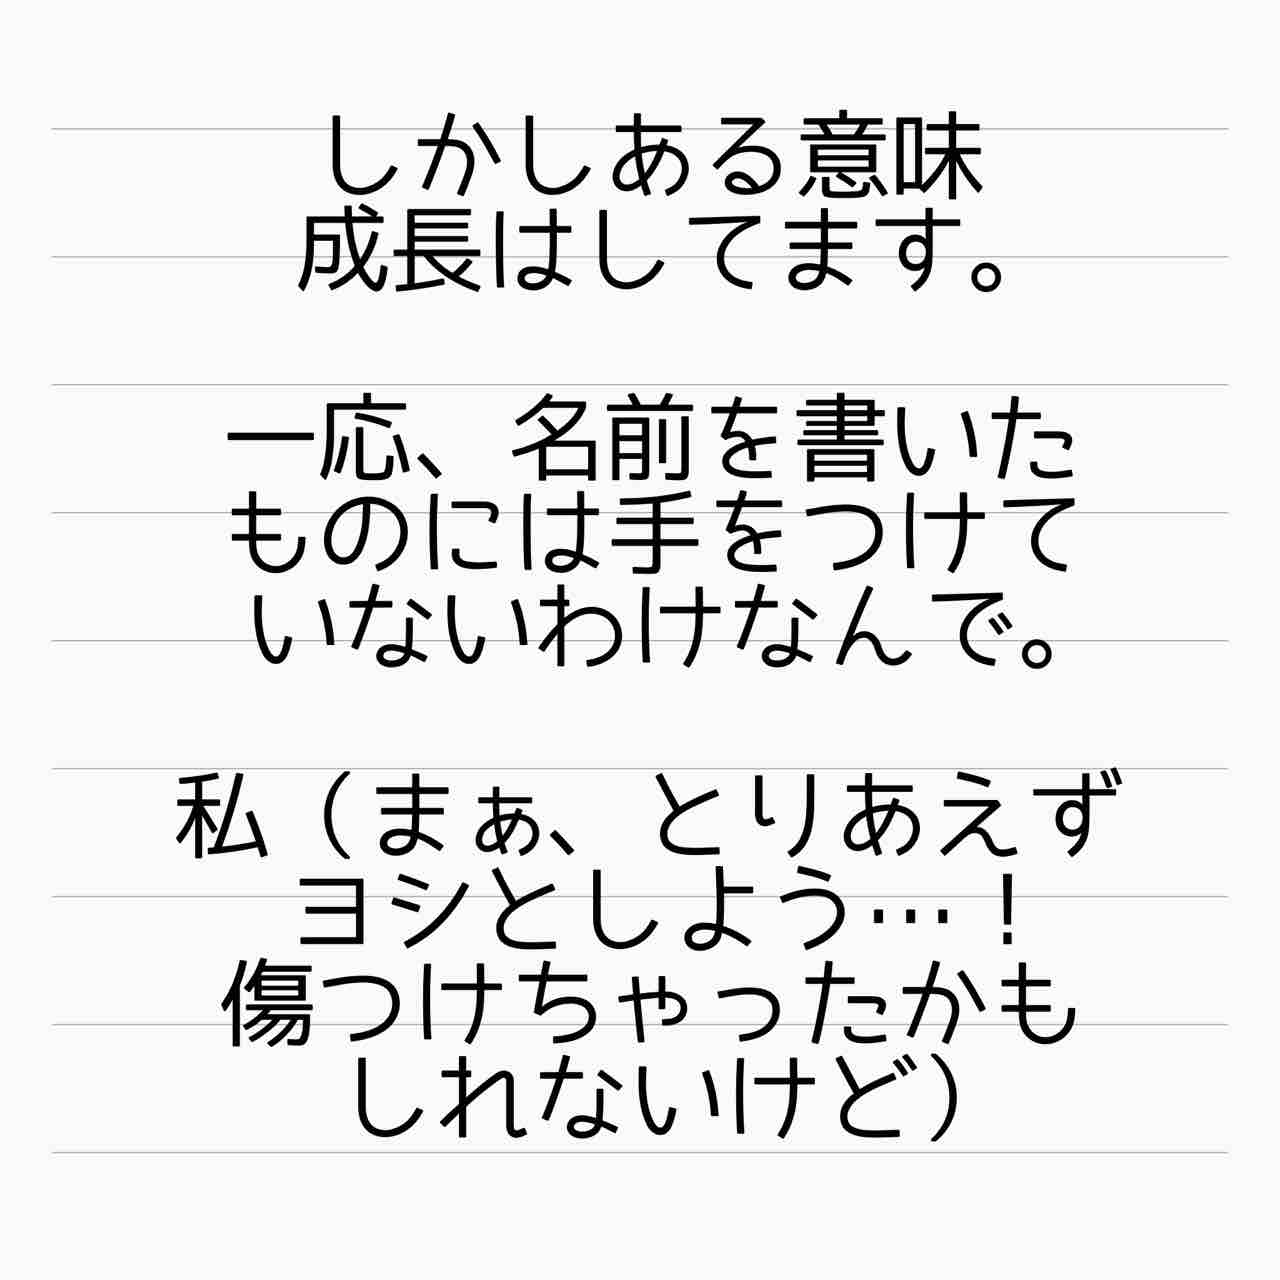 しかしある意味
成長はしてます。
一応、名前を書いた
ものには手をつけて
いないわけなんで。
私（まぁ、とりあえず
ヨシとしよう…！
傷つけちゃったかも
しれないけど）